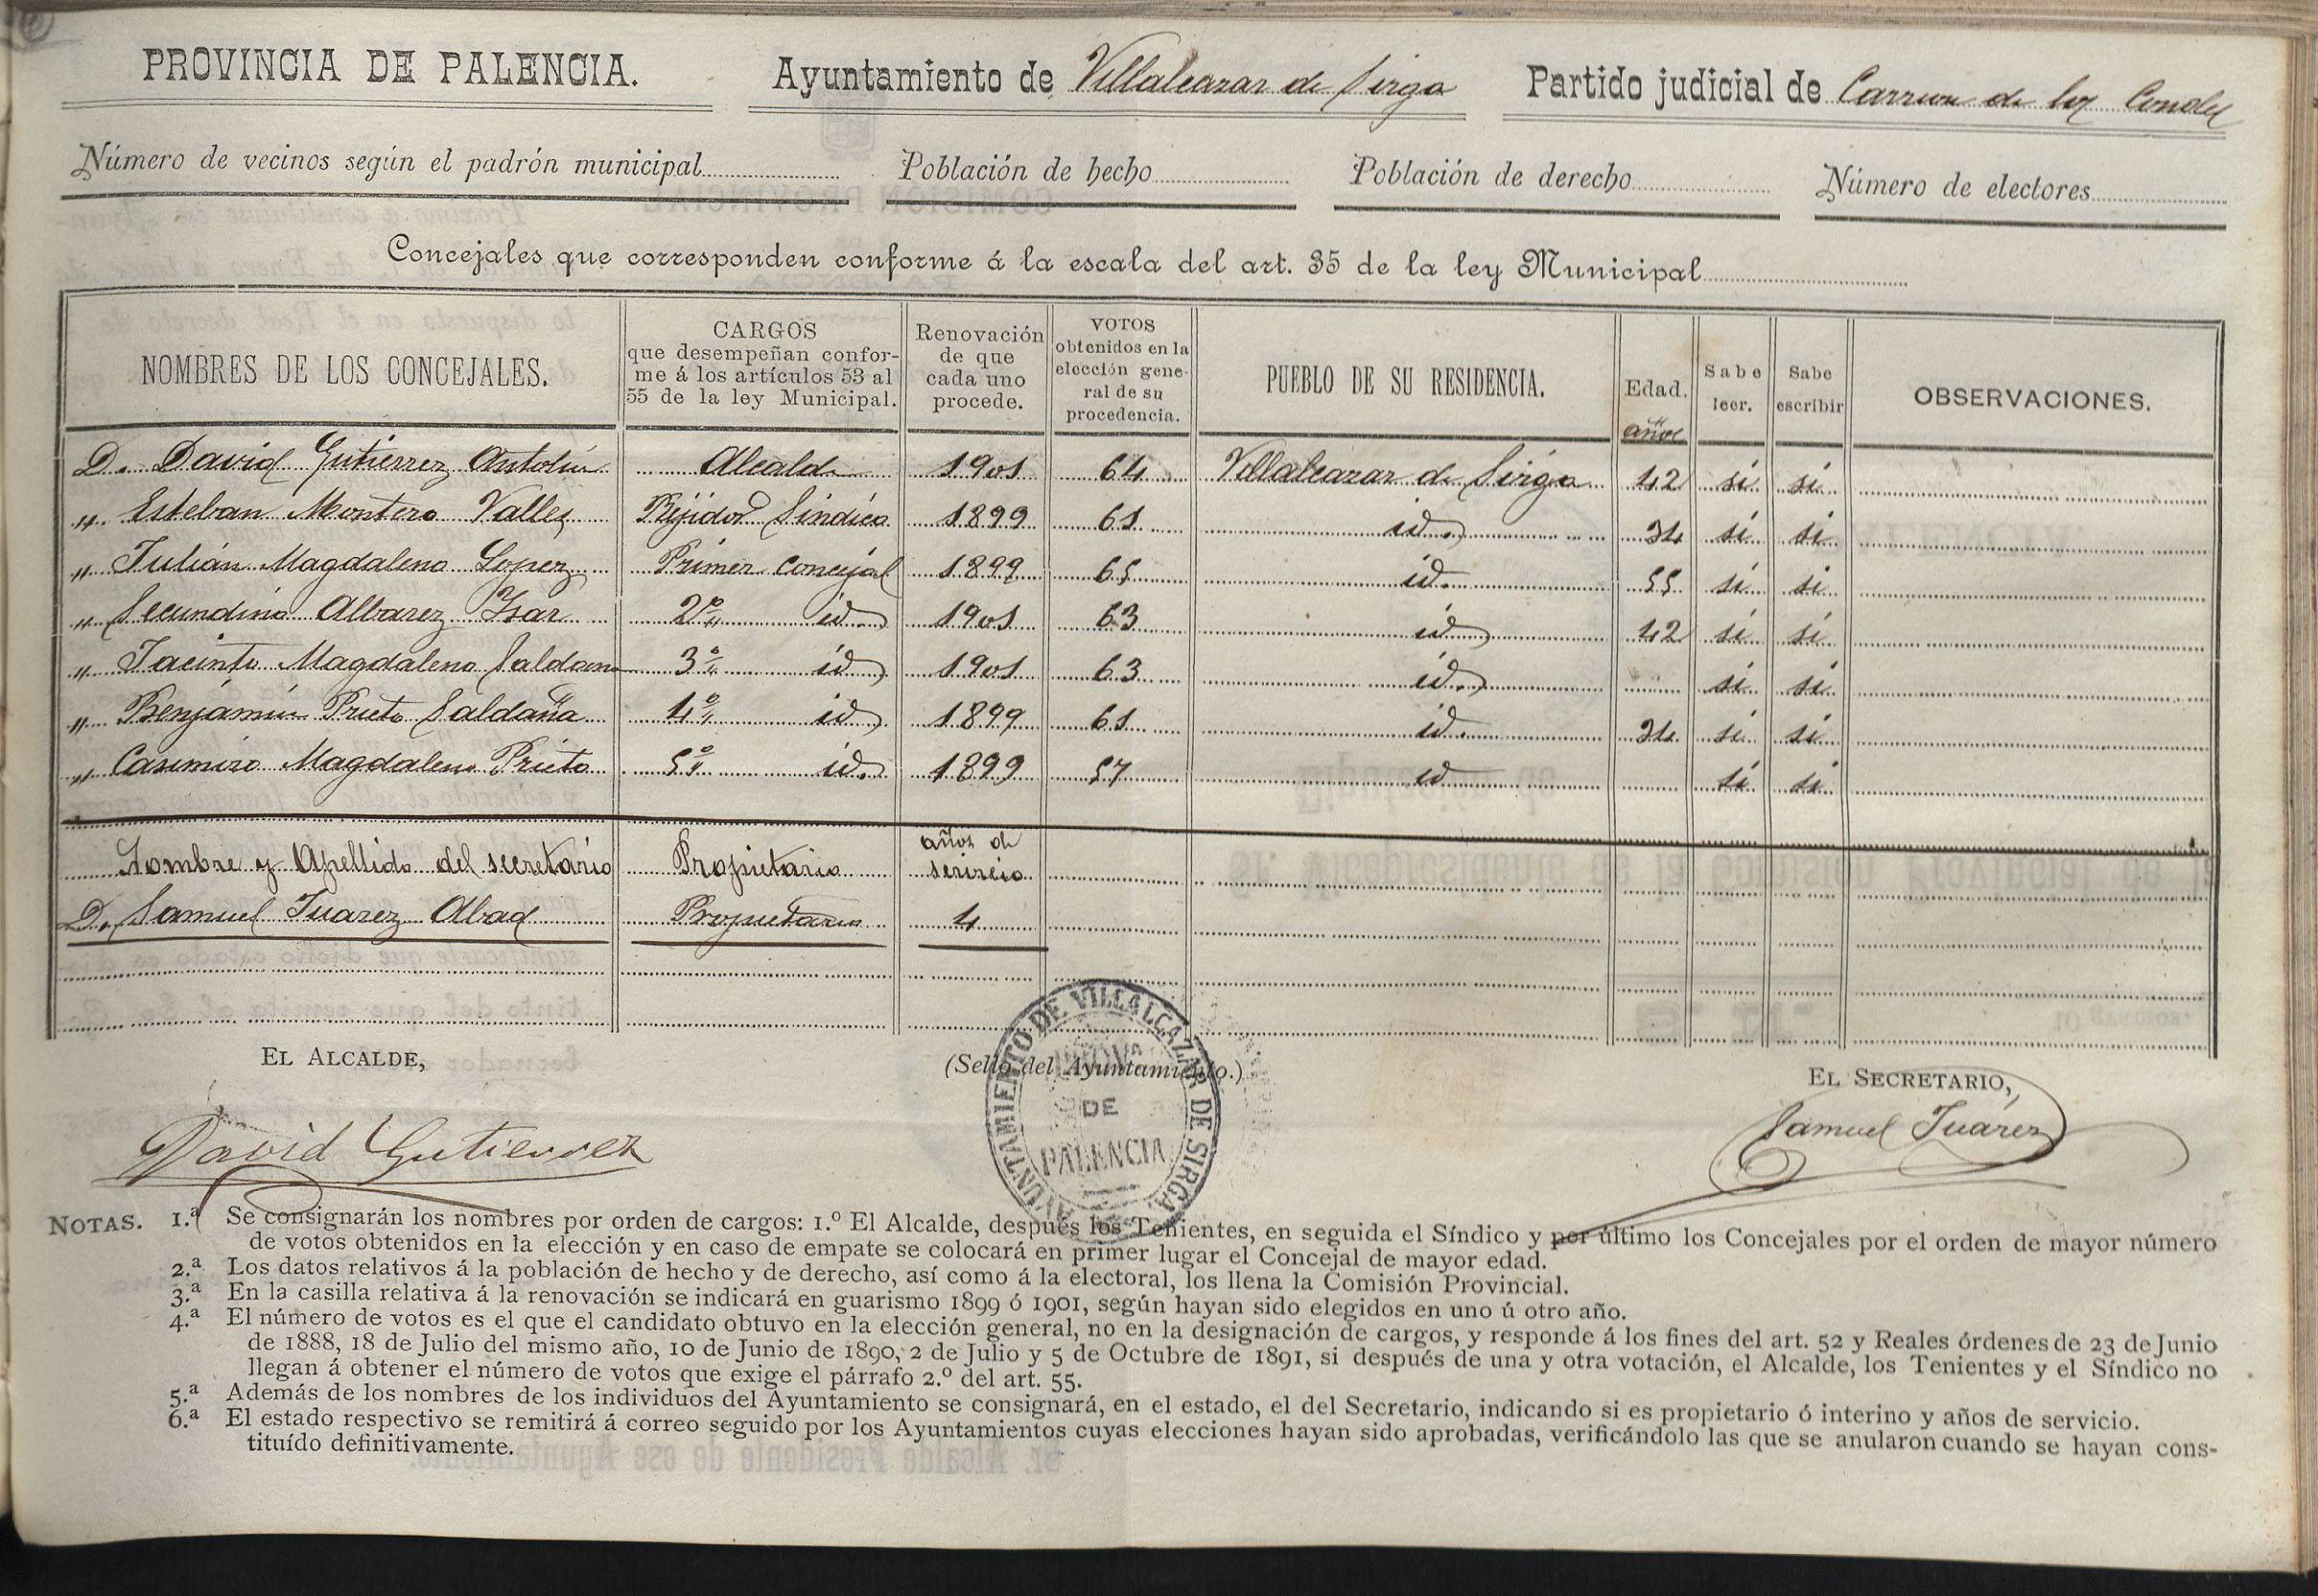 PROVINCIA DE PALENCIA. Ayuntamiento de Villalcazar de Sirga Partido judicial de Carrion de los Condes
Número de vecinos según el padrón municipal Población de hecho Población de derecho Número de electores
Concejales que corresponden conforme á la escala del art. 35 de la ley Municipal
NOMBRES DE LOS CONCEJALES. CARGOS que desempeñan confor- me á los artículos 53 al 55 de la ley Municipal. Renovación de que cada uno procede. VOTOS obtenidos en la elección gene- ral de su procedencia. PUEBLO DE SU RESIDENCIA. Edad. años Sabe leer. Sabe escribir OBSERVACIONES.
D. David Gutierrez Antolin Alcalde 1901 64 Villalcazar de Sirga 42 si si
" Esteban Montero Valles Rejidor Sindico 1899 61 id. 34 si si
" Julián Magdaleno Lopez Primer concejal 1899 65 id. 55 si si
" Secundino Albarez Isar 2º id. 1901 63 id 42 si si
" Jacinto Magdaleno Saldana 3º id 1901 63 id. si si
" Benjamin Prieto Saldaña 4º id 1899 61 id. 34 si si
" Casimiro Magdaleno Prieto 5º id. 1899 57 id si si
Nombre y Apellido del secretario Propietario años de serivcio
D. Samuel Juarez Abad Propietario 4
EL ALCALDE, (Sello del Ayuntamiento.) EL SECRETARIO,
AYUNTAMIENTO DE VILLALCAZAR DE SIRGA
DE
PALENCIA
David Gutierrez Samuel Juárez
NOTAS. 1.ª Se consignarán los nombres por orden de cargos: 1.º El Alcalde, después los Tenientes, en seguida el Síndico y por último los Concejales por el orden de mayor número
de votos obtenidos en la elección y en caso de empate se colocará en primer lugar el Concejal de mayor edad.
2.ª Los datos relativos á la población de hecho y de derecho, así como á la electoral, los llena la Comisión Provincial.
3.ª En la casilla relativa á la renovación se indicará en guarismo 1899 ó 1901, según hayan sido elegidos en uno ú otro año.
4.ª El número de votos es el que el candidato obtuvo en la elección general, no en la designación de cargos, y responde á los fines del art. 52 y Reales órdenes de 23 de Junio
de 1888, 18 de Julio del mismo año, 10 de Junio de 1890, 2 de Julio y 5 de Octubre de 1891, si después de una y otra votación, el Alcalde, los Tenientes y el Síndico no
llegan á obtener el número de votos que exige el párrafo 2.º del art. 55.
5.ª Además de los nombres de los individuos del Ayuntamiento se consignará, en el estado, el del Secretario, indicando si es propietario ó interino y años de servicio.
6.ª El estado respectivo se remitirá á correo seguido por los Ayuntamientos cuyas elecciones hayan sido aprobadas, verificándolo las que se anularon cuando se hayan cons-
tituído definitivamente.